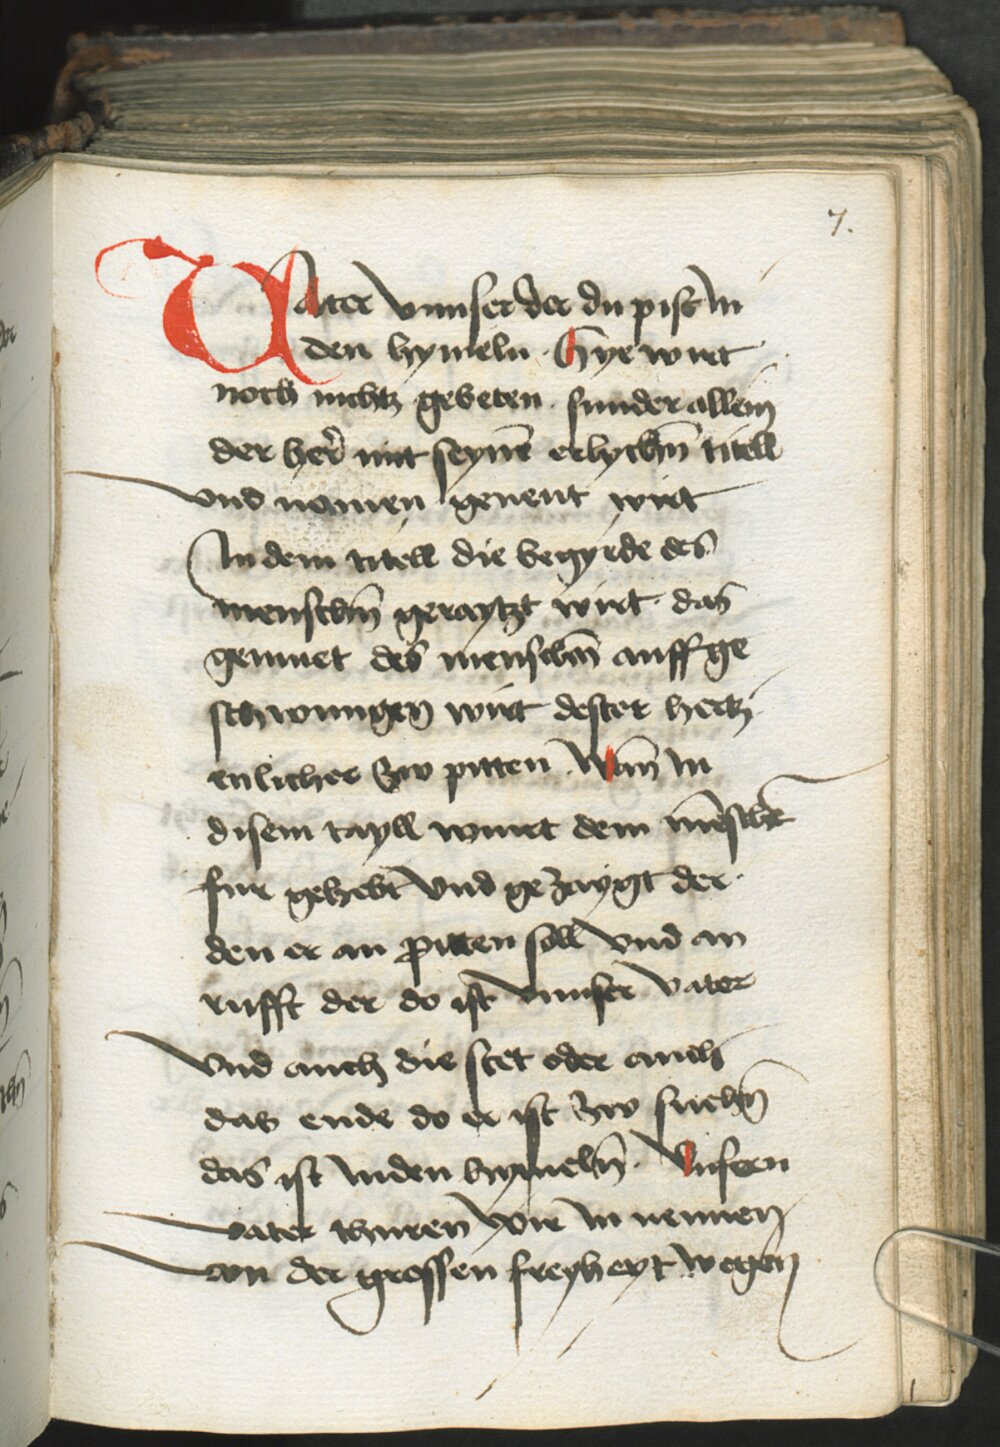 7.
Vater vnnser der du pist in
den hymeln . Hye wirt
noch nichtz gebeten . sunder allein
der her̄ mit seynē erlychn̄ titell
vnd nomen genent wirt
In dem titell die begyrde des
menschn̄ geraytzt wirt . das
gemuet des menschn̄ auff ge
schwungen wirt dester hertz
enlicher zw pitten . Wan̄ in
disem tayll wiirt dem mēschē
fur gehebt vnd gezaygt der .
den er an pitten soll vnd an
rufft der do ist vnnser vater
vnd auch die stet oder auch
das ende do er ist zw suchn̄
das ist in den hymeln̄ . Vnsern
vater thuren wir in nennen
von der grossen freyheyt wegen